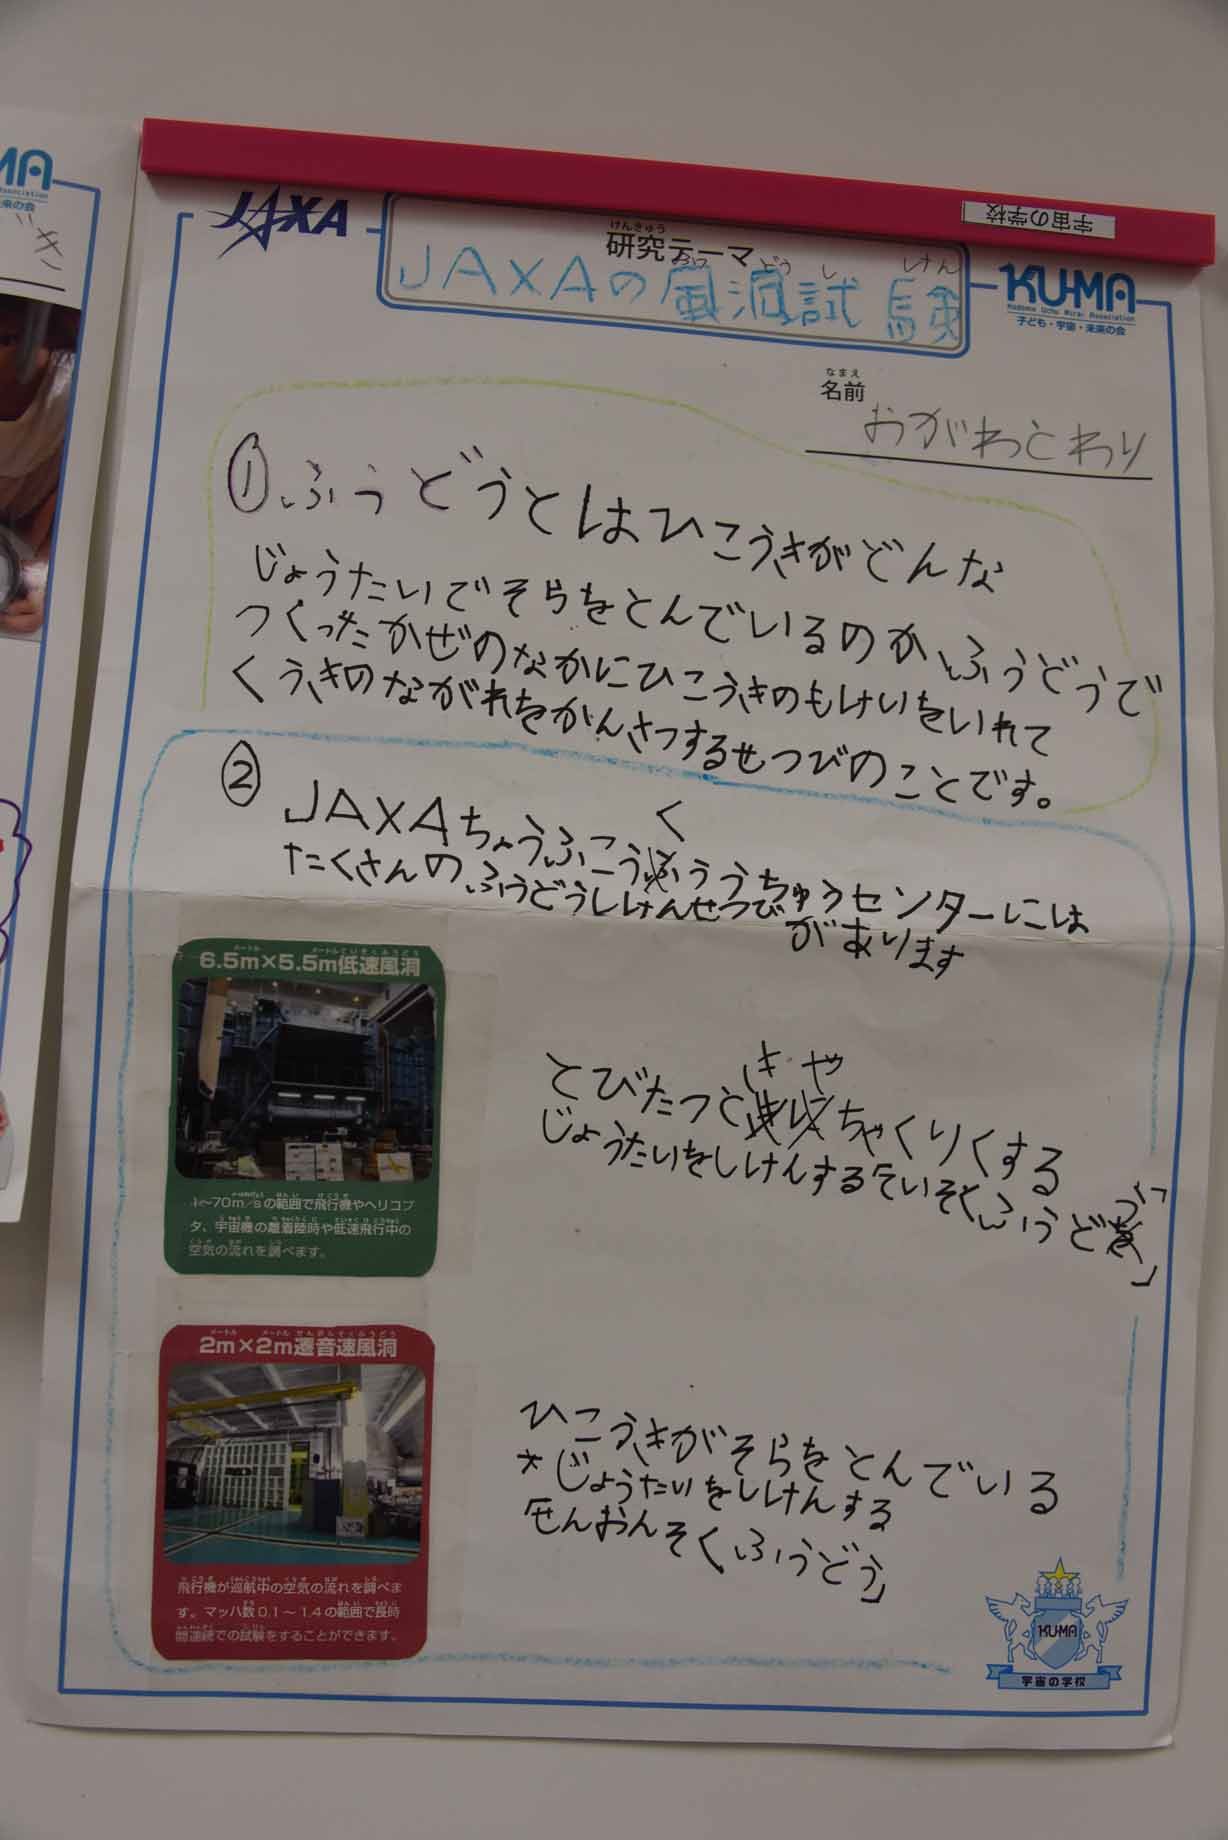 宇宙の学校
JAXA
けんきゅう
研究テーマ
ふう どう し けん
JAXAの風洞試験
KU-MA
Kodomo Uchu Mirai Association
子ども・宇宙・未来の会
なまえ
名前
おがわとわり
①ふうどうとはひこうきがどんな
じょうたいでそらをとんでいるのかふうどうで
つくったかぜのなかにひこうきのもけいをいれて
くうきのながれをかんさつするせつびのことです。
②
JAXAちょうふこうくううちゅうセンターには
たくさんのふうどうしけんせつびがあります
6.5m×5.5m低速風洞
1〜70m/sの範囲で飛行機やヘリコプ
タ、宇宙機の離着陸時や低速飛行中の
空気の流れを調べます。
とびたつときやちゃくりくする
じょうたいをしけんするていそくふうどう」
2m×2m遷音速風洞
飛行機が巡航中の空気の流れを調べま
す。マッハ数0.1〜1.4の範囲で長時
間連続での試験をすることができます。
ひこうきがそらをとんでいる
じょうたいをしけんする
せんおんそくふうどう」
KU-MA
宇宙の学校